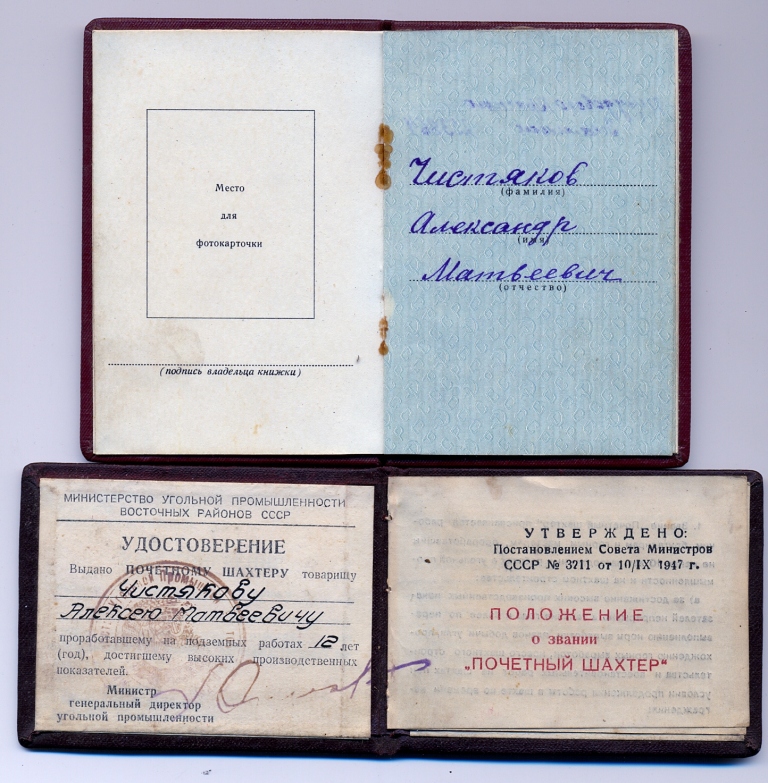 Место
для
фотокарточки
(подпись владельца книжки)
Чистяков
(фамилия)
Александр
(имя)
Матвеевич
(отчество)
МИНИСТЕРСТВО УГОЛЬНОЙ ПРОМЫШЛЕННОСТИ
ВОСТОЧНЫХ РАЙОНОВ СССР
УДОСТОВЕРЕНИЕ
Выдано ПОЧЕТНОМУ ШАХТЕРУ товарищу
Чистякову
Алексею Матвеевичу
проработавшему на подземных работах 12 лет
(год), достигшему высоких производственных
показателей.
Министр
генеральный директор
угольной промышленности
УТВЕРЖДЕНО:
Постановлением Совета Министров
СССР № 3211 от 10/IX 1947 г.
ПОЛОЖЕНИЕ
о звании
„ПОЧЕТНЫЙ ШАХТЕР"